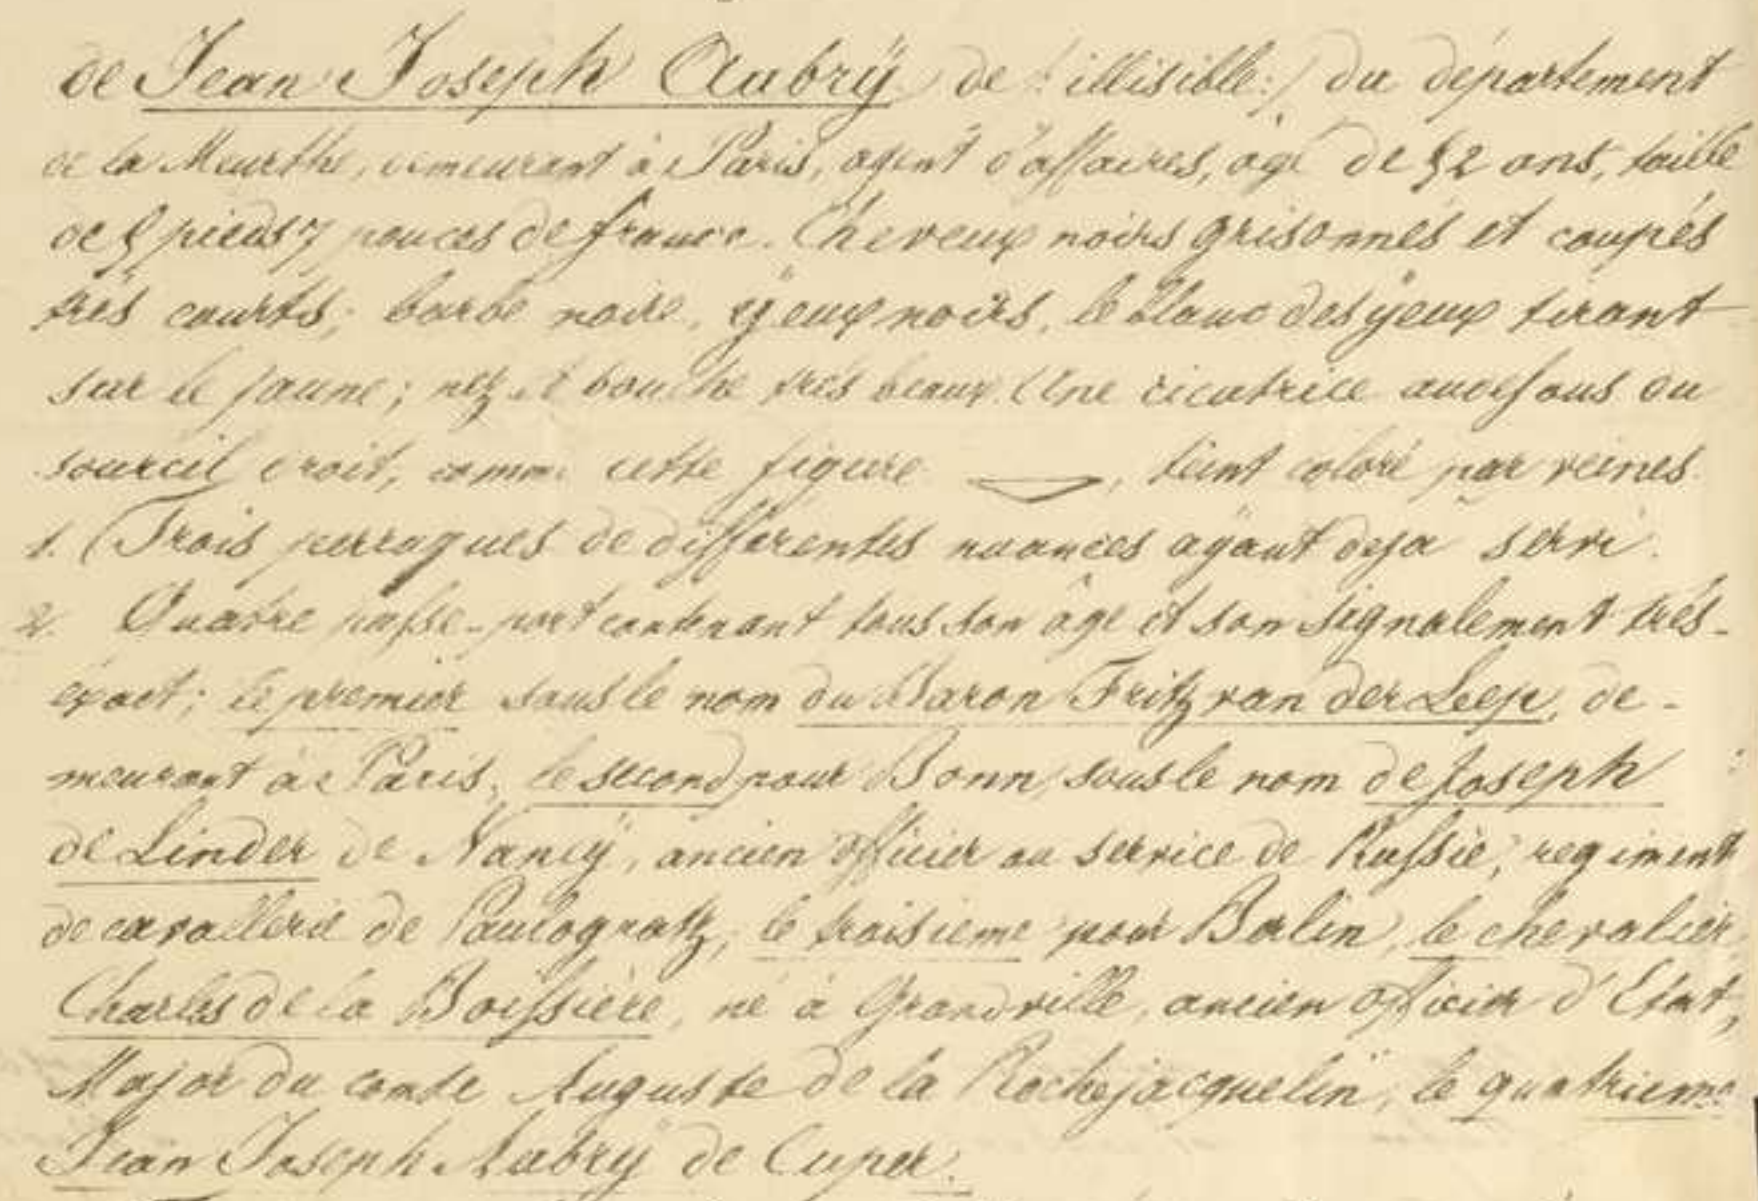 de Jean Joseph Aubrÿ de /: illisible :/ du département
de la Meurthe, demeurant à Paris, agent d'affaires, âgé de 52 ans, taille
de 5 pieds 7 pouces de france. Cheveux noirs grisonnés et coupés
très courts; barbe noire, ÿeux noirs, le blanc des ÿeux tirant
sur le jaune; nez et bouche très beaux. Une cicatrice audessous du
sourcil droit, comme cette figure , teint coloré par veines.
1. Trois perruques de différentes nuances aÿant deja servi.
2. Quatre passe-port contenant tous son âge et son signalement très-
éxact; le premier sous le nom du Baron Fritz van der Leep, de-
meurant à Paris, le second pour Bonn, sous le nom de Joseph
de Linder de Nancÿ, ancien officier au service de Russie, regiment
de cavallerie de , le troisieme pour Berlin, le chevalier
Charles de la Boissière, né à Grandville, ancien officier d'Etat,
Major du comte Auguste de la Rochejacquelin, le quatrieme
Jean Joseph Aubrÿ de Cuper.